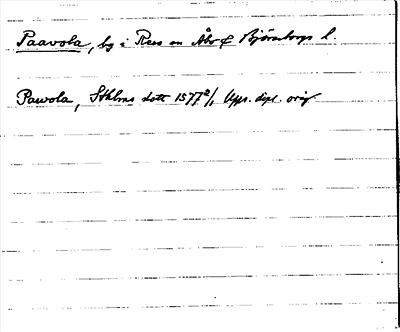 Paavola, by i Reso sn Åbo & Björneborgs l.
Pawola, Sthlms slott 1577 2/1 Upps. dipl. orig